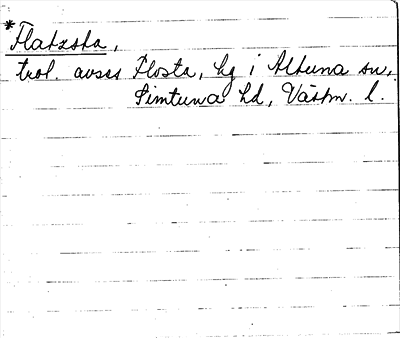 *Flatzsta,
trol. avses Flosta, hg i Altuna sn,
Simtuna hd, Västm. l.